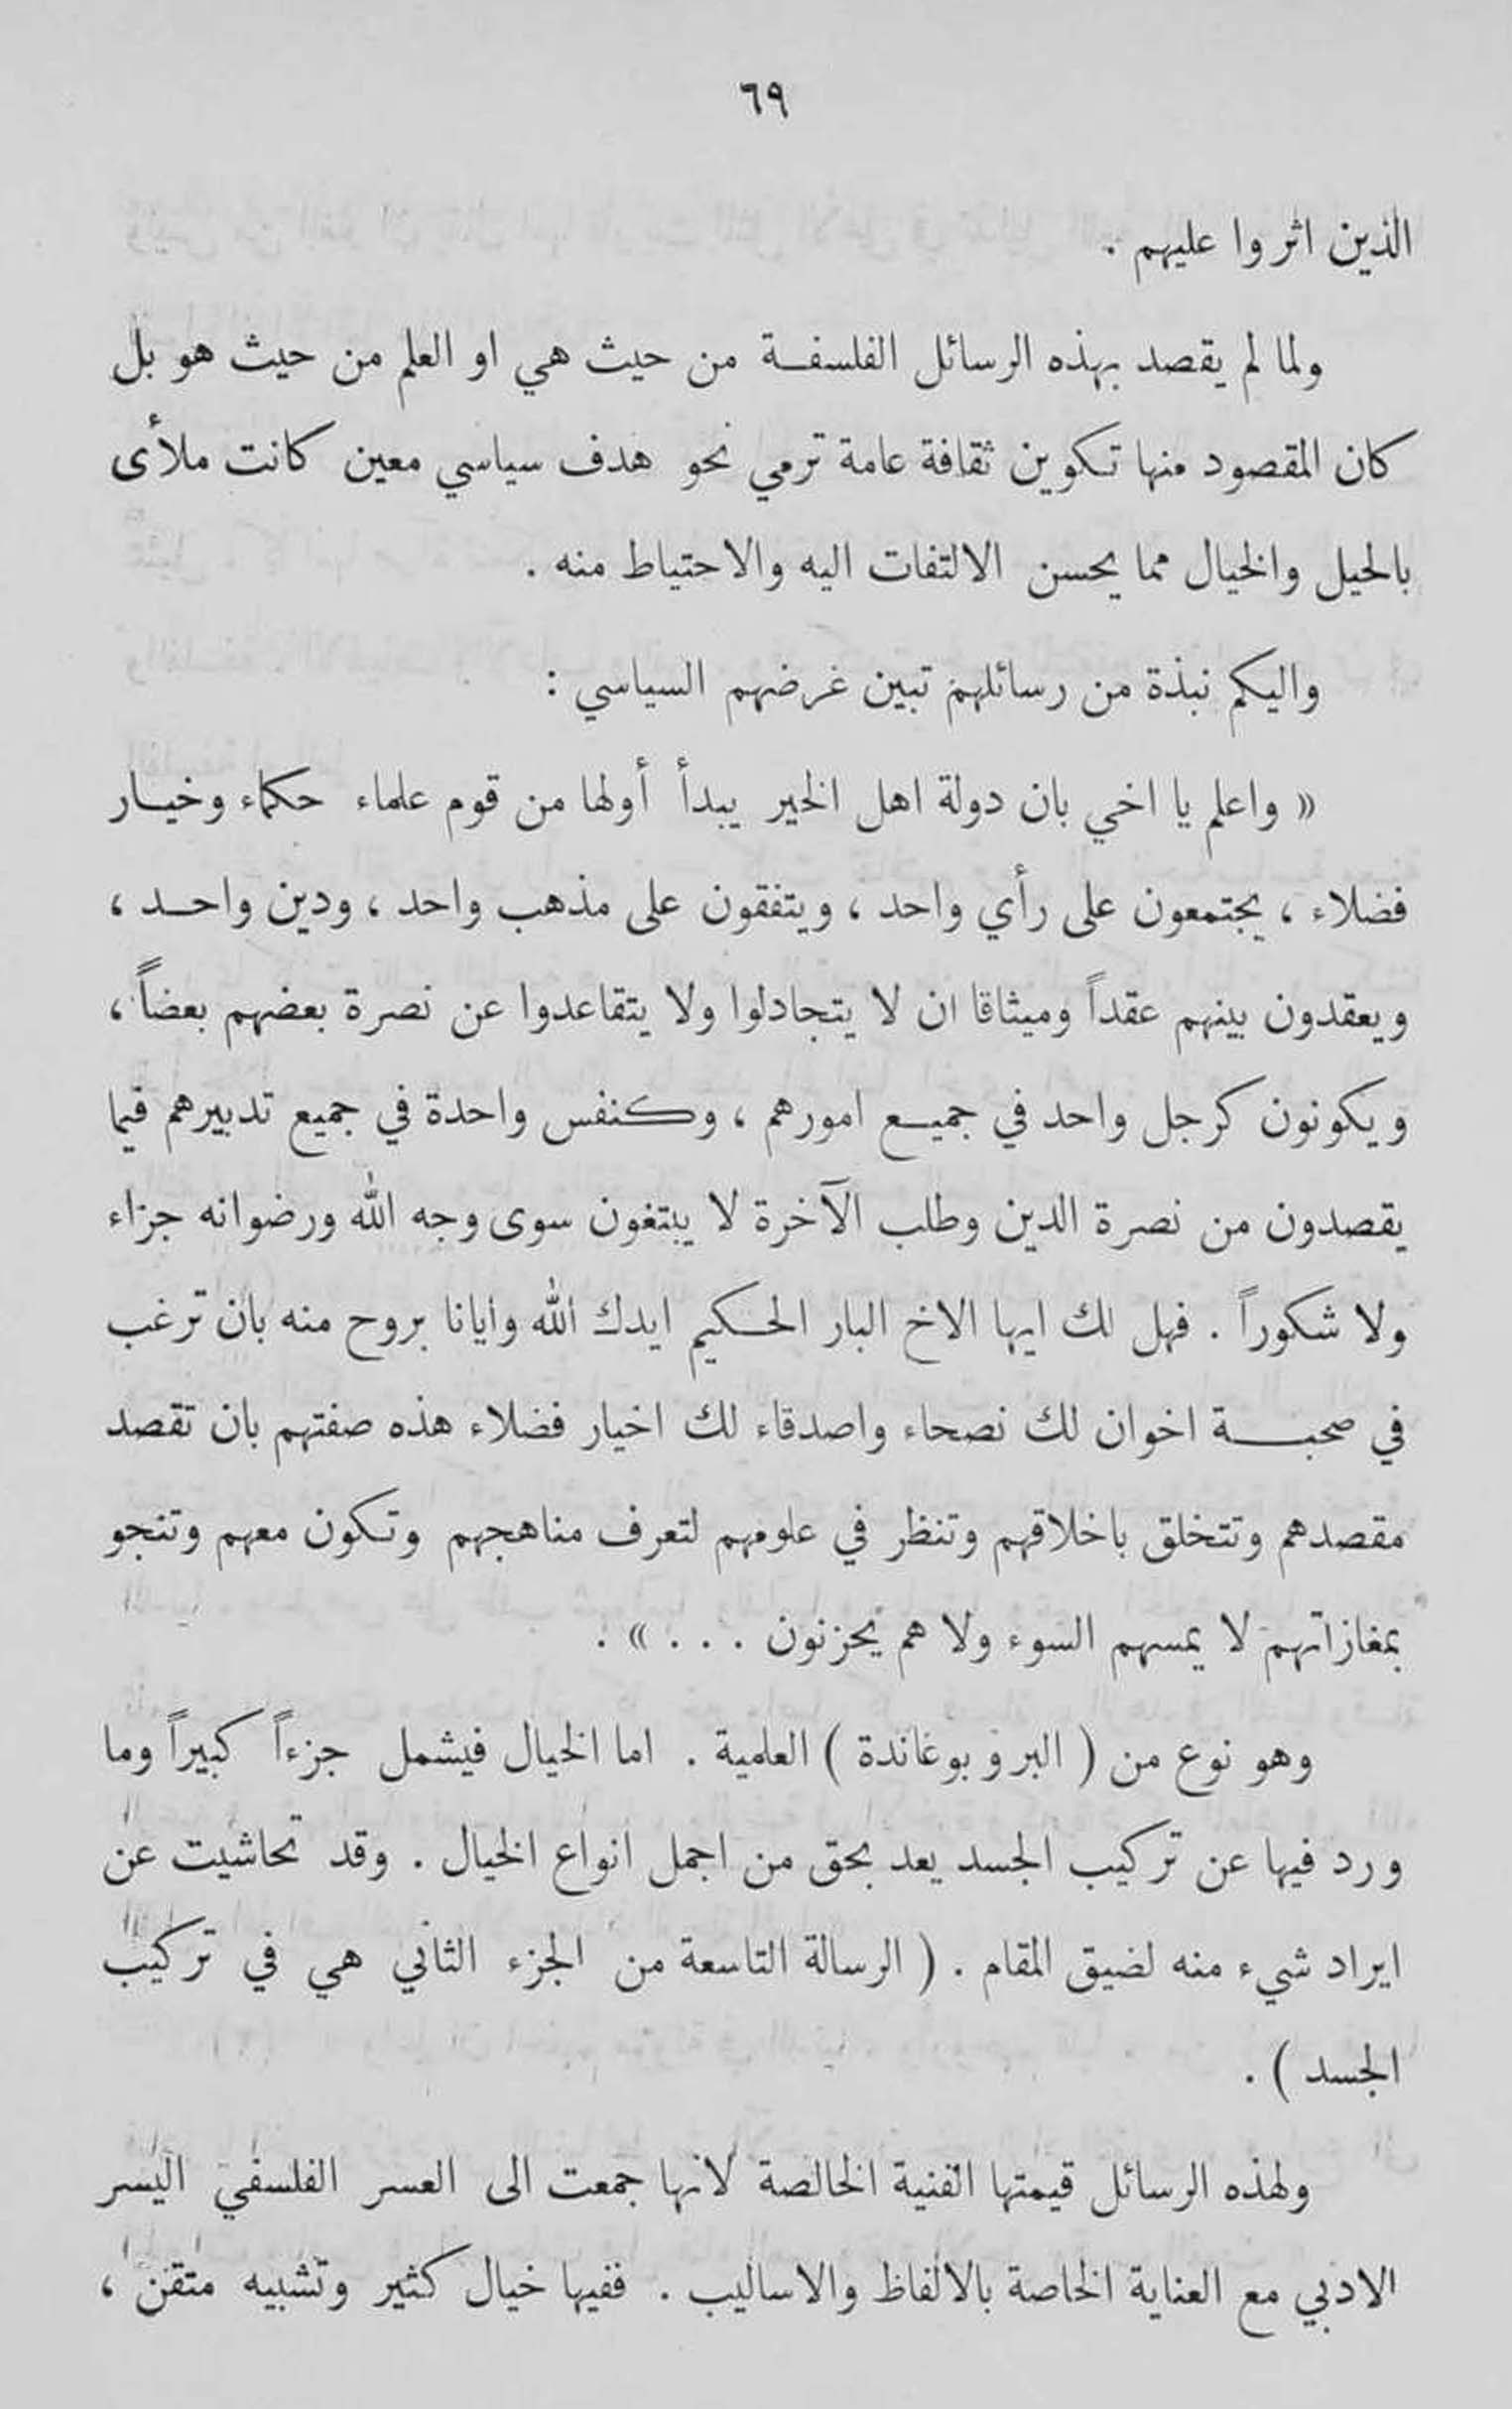 ٦٩
الذين اثروا عليهم .
ولما لم يقصد بهذه الرسائل الفلسفة من حيث هي او العلم من حيث هو بل
كان المقصود منها تكوين ثقافة عامة ترمي نحو هدف سياسي معين كانت ملأى
بالحيل والخيال مما يحسن الالتفات اليه والاحتياط منه .
واليكم نبذة من رسائلهم تبين غرضهم السياسي :
« واعلم يا اخي بان دولة اهل الخير يبدأ أولها من قوم علماء حكماء وخيار
فضلاء ، يجتمعون على رأي واحد ، ويتفقون على مذهب واحد ، ودين واحد ،
ويعقدون بينهم عقداً وميثاقا ان لا يتجادلوا ولا يتقاعدوا عن نصرة بعضهم بعضاً ،
ويكونون كرجل واحد في جميع امورهم ، وكنفس واحدة في جميع تدبيرهم فيما
يقصدون من نصرة الدين وطلب الآخرة لا يبتغون سوى وجه الله ورضوانه جزاء
ولا شكوراً . فهل لك ايها الاخ البار الحكيم ايدك الله وايانا بروح منه بان ترغب
في صحبة اخوان لك نصحاء واصدقاء لك اخيار فضلاء هذه صفتهم بان تقصد
مقصدهم وتتخلق باخلاقهم وتنظر في علومهم لتعرف مناهجهم وتكون معهم وتنجو
بمفازاتهم لا يمسهم السوء ولا هم يحزنون . . . » .
وهو نوع من ( البروبوغاندة ) العلمية . اما الخيال فيشمل جزءاً كبيراً وما
ورد فيها عن تركيب الجسد يعد بحق من اجمل انواع الخيال . وقد تحاشيت عن
ايراد شيء منه لضيق المقام . ( الرسالة التاسعة من الجزء الثاني هي في تركيب
الجسد ) .
ولهذه الرسائل قيمتها الفنية الخالصة لانها جمعت الى العسر الفلسفي اليسر
الادبي مع العناية الخاصة بالالفاظ والاساليب . ففيها خيال كثير وتشبيه متقن ،